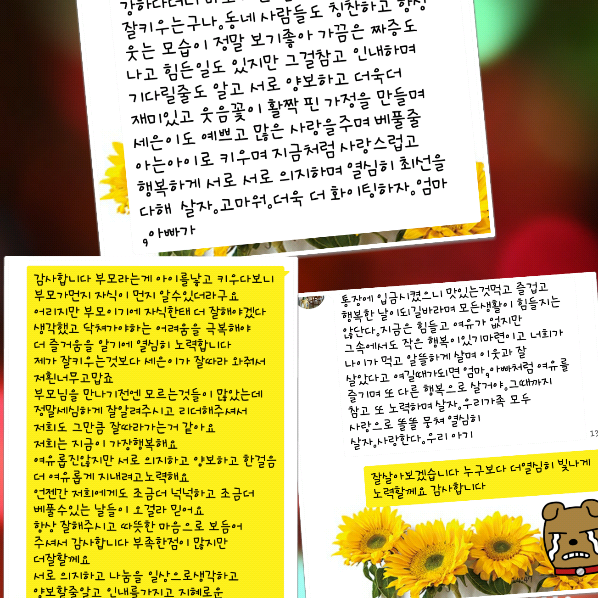 잘키우는구나.동네 사람들도 칭찬하고 항상
웃는 모습이 정말 보기좋아 가끔은 짜증도
나고 힘든일도 있지만 그걸참고 인내하며
기다릴줄도 알고 서로 양보하고 더욱더
재미있고 웃음꽃이 활짝 핀 가정을 만들며
세은이도 예쁘고 많은 사랑을주며 베풀줄
아는아이로 키우며 지금처럼 사랑스럽고
행복하게 서로 서로 의지하며 열심히 최선을
다해 살자.고마워.더욱 더 화이팅하자.엄마
,아빠가
감사합니다 부모라는게 아이를낳고 키우다보니
부모가먼지 자식이 먼지 알수있더라구요
어리지만 부모이기에 자식한태 더 잘해야겠다
생각했고 닥쳐가야하는 어려움을 극복해야
더 즐거움을 알기에 열심히 노력합니다
제가 잘키우는것보다 세은이가 잘따라 와줘서
저흰너무고맙죠
부모님을 만나기전엔 모르는것들이 많았는데
정말세심하게 잘알려주시고 리더해주셔서
저희도 그만큼 잘따라가는거 같아요
저희는 지금이 가장행복해요
여유롭진않지만 서로 의지하고 양보하고 한걸음
더 여유롭게 지내려고노력해요
언젠간 저희에게도 조금더 넉넉하고 조금더
베풀수있는 날들이 오겔라 믿어요
항상 잘해주시고 따뜻한 마음으로 보듬어
주셔서 감사합니다 부족한점이 많지만
더잘할께요
서로 의지하고 나눔을 일상으로생각하고
양보할줄알고 인내를가지고 지혜로운
통장에 입금시켰으니 맛있는것먹고 즐겁고
행복한 날이되길바라며 모든생활이 힘들지는
않단다.지금은 힘들고 여유가 없지만
그속에서도 작은 행복이있기마련이고 너희가
나이가 먹고 알뜰하게 살며 이웃과 잘
살았다고 여길때가되면 엄마,아빠처럼 여유를
즐기며 또 다른 행복으로 살거야.그때까지
참고 또 노력하며 살자.우리가족 모두
사랑으로 똘똘 뭉쳐 열심히
살자.사랑한다.우리 아기
잘살아보겠습니다 누구보다 더열심히 빛나게
노력할께요 감사합니다